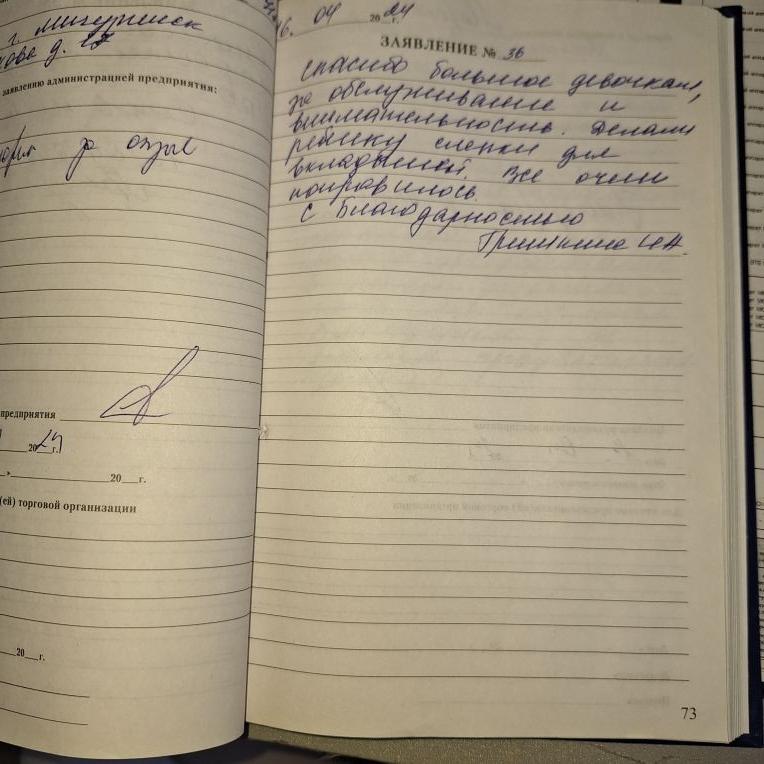 г. Мичуринск
д. 17
заявлению администрацией предприятия:
за отзыв
предприятия
2024г.
20 г.
(ей) торговой организации
20 г.
16. 04 2024г.
ЗАЯВЛЕНИЕ № 36
Спасибо большое девочкам,
за обслуживание и
внимательность. Делали
ребёнку слепки для
вкладышей. Все очень
понравилось.
С благодарностью
73